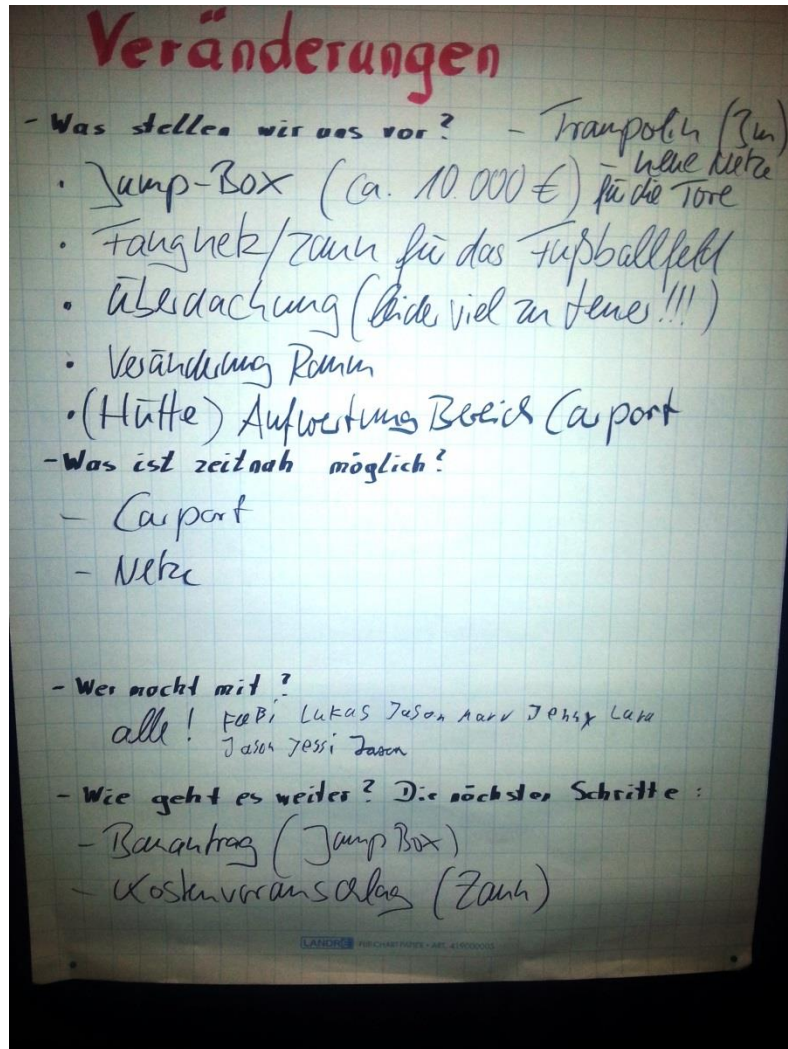 Veränderungen
- Was stellen wir uns vor? - Trampolin (3m)
- neue Netze
· Jump-Box (ca. 10.000 €) für die Tore
· Fangnetz/Zaun für das Fußballfeld
· Überdachung (leider viel zu teuer!!!)
· Veränderung Raum
· (Hütte) Aufwertung Bereich Carport
- Was ist zeitnah möglich?
- Carport
- Netze
- Wer macht mit?
alle! FABi LUKAS Jason Marv Jenny Lara
Jason Jessi Jason
- Wie geht es weiter? Die nächsten Schritte:
- Bauantrag (Jump Box)
- Kostenvoranschlag (Zaun)
LANDRÉ